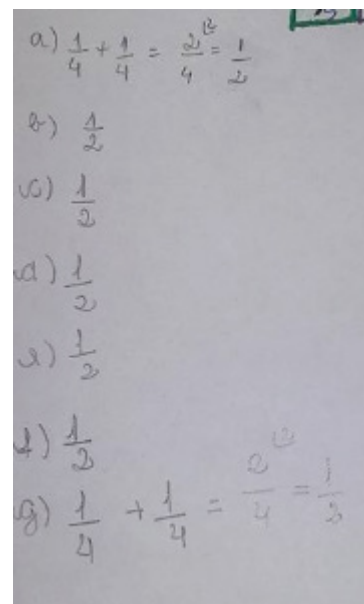 a) 1/4 + 1/4 = 2/4 ⁽² = 1/2
b) 1/2
c) 1/2
d) 1/2
e) 1/2
f) 1/2
g) 1/4 + 1/4 = 2/4 ⁽² = 1/2